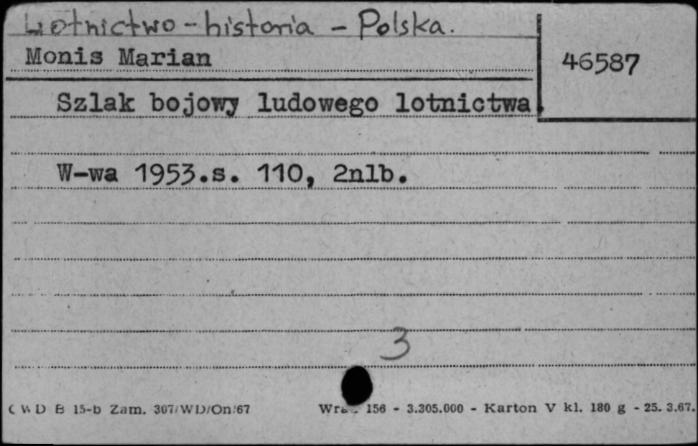 Lotnictwo - historia - Polska.
Monis Marian
46587
Szlak bojowy ludowego lotnictwa.
W-wa 1953.s. 110, 2nlb.
3
CWD B 15-b Zam. 307/WD/On/67 156 - 3.305.000 - Karton V kl. 180 g - 25. 3.67.